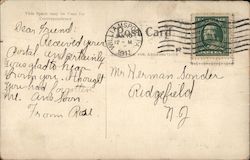 This Space may be Used for
Dear Friend:
Received your
postal. Certainly
was glad to hear
from you. I thought
you had forgotten
me. Ans Soon
From Rose
Post Card
1912
Mr Herman Sonder
Ridgefield
N J